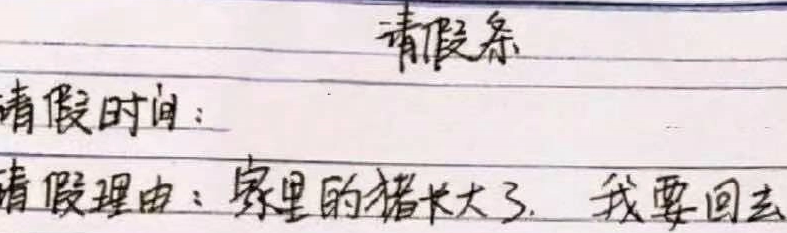 请假条
请假时间：
请假理由：家里的猪长大了. 我要回去